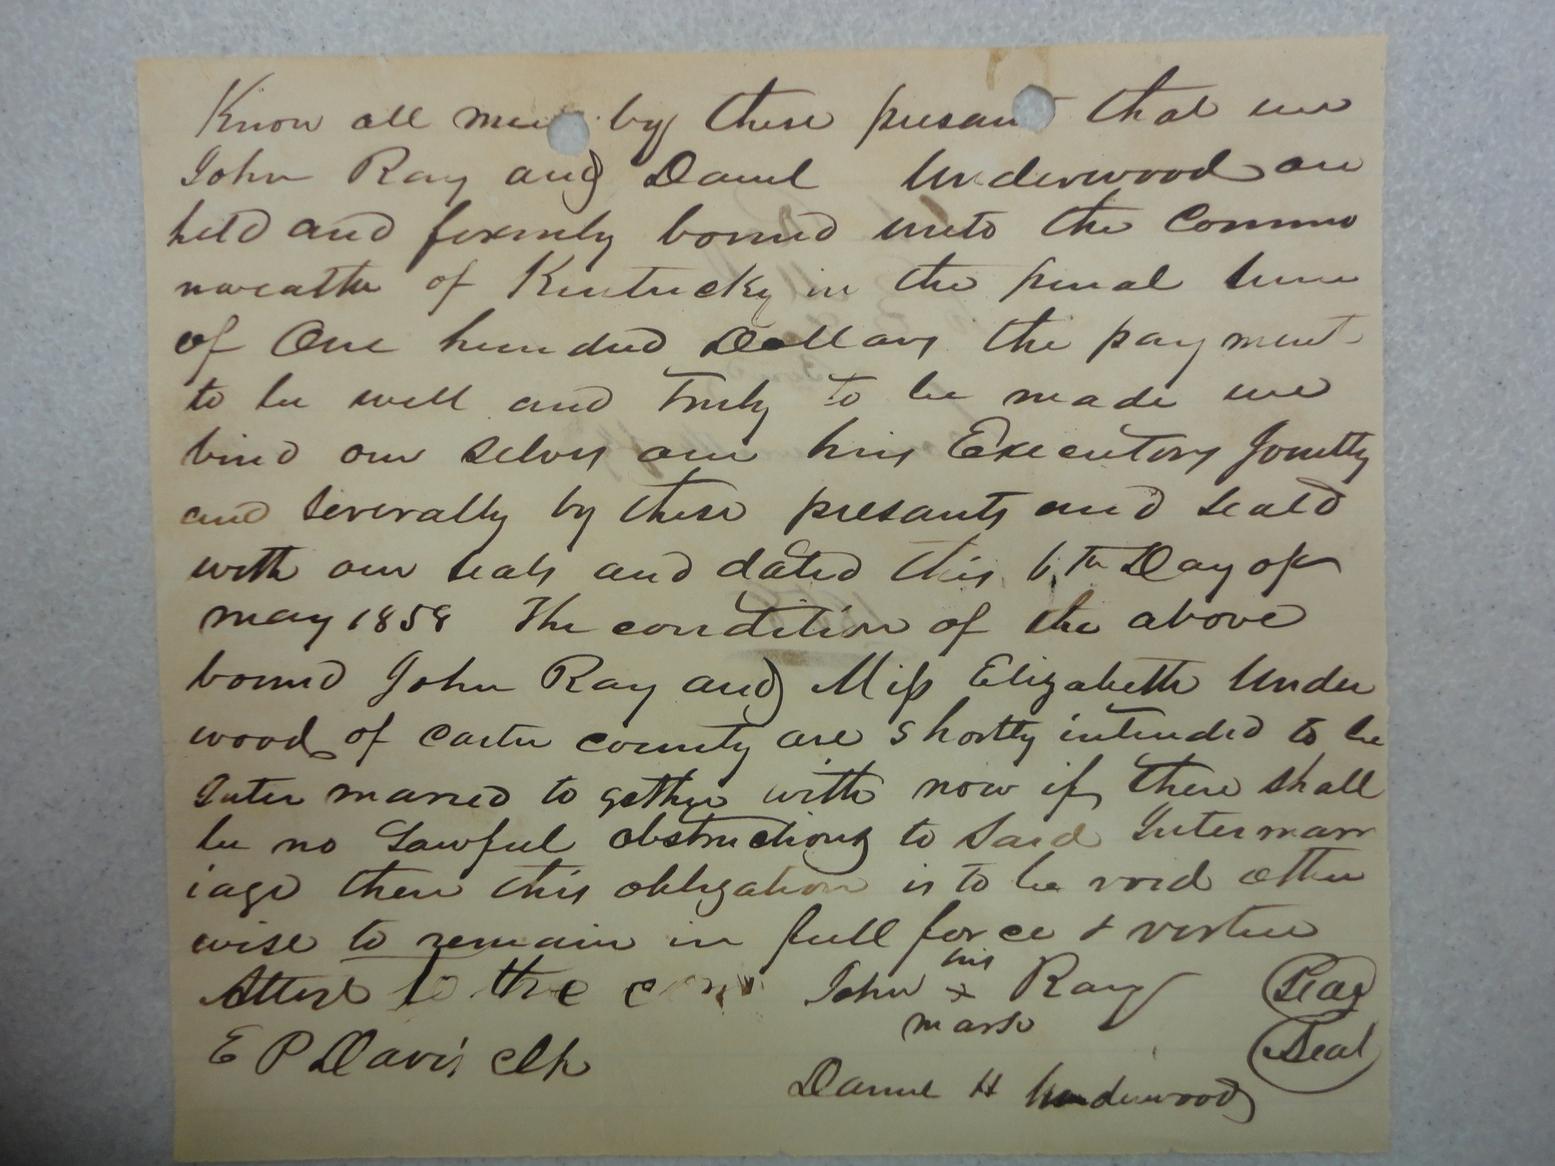 Know all men by these presants that we
John Ray and Daniel Underwood are
held and firmly bound unto the Commo
nwealth of Kentucky in the penal sum
of One hundred Dollars the payment
to be well and Truly to be made we
bind our selves our hirs Executors Jointly
and severally by these presants and seald
with our seals and dated this 6th Day of
may 1858 The condition of the above
bound John Ray and Miss Elizabeth Under
wood of Carter county are shortly intended to be
Inter married to gether with now if there shall
be no Lawful obstructions to said Intermarr
iage then this obligation is to be void other
wise to remain in full force & vertue
Attest to the John his x mark Ray Seal
E P Davis Clk Seal
Daniel H Underwood